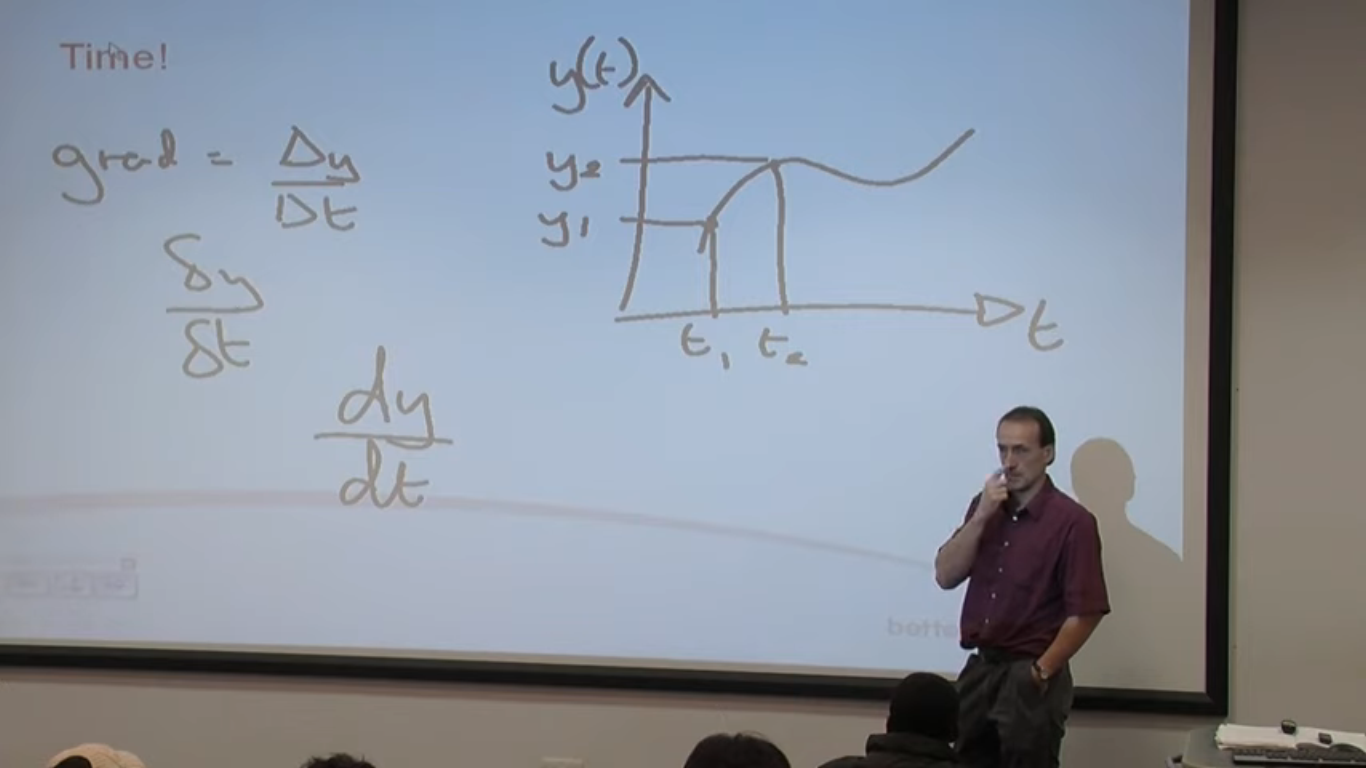 Time!
grad = Δy
Δt
δy
δt
dy
dt
y(t)
y2
y1
t1 t2
t